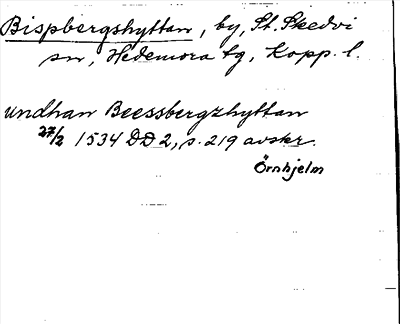 Bispbergshyttan, by, St. Skedvi
sn, Hedemora tg, Kopp. l.
undhan Beessbergzhyttan
27/2 1534 DD 2, s. 219 avskr.
Örnhjelm